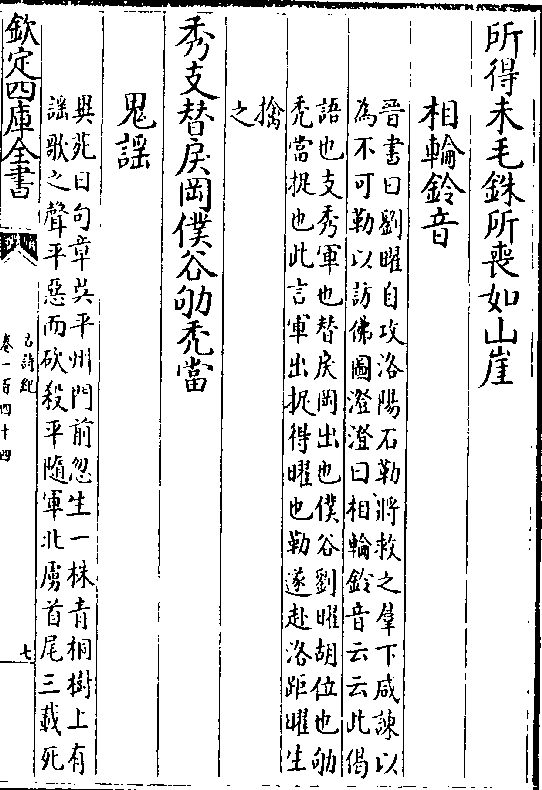 所得未毛銖所喪如山崖
相輪鈴音
晉書曰劉曜自攻洛陽石勒將救之羣下咸諫以
為不可勒以訪佛圖澄澄曰相輪鈴音云云此偈
語也支秀軍也替戾岡出也僕谷劉曜胡位也劬
禿當捉也此言軍出捉得曜也勒遂赴洛距曜生
擒
之
秀支替戾岡僕谷劬禿當
鬼謡
異苑曰句章吴平州門前忽生一株青桐樹上有
謡歌之聲平惡而砍殺平隨軍北虜首尾三載死
欽定四庫全書
古詩紀
卷一百四十四
七